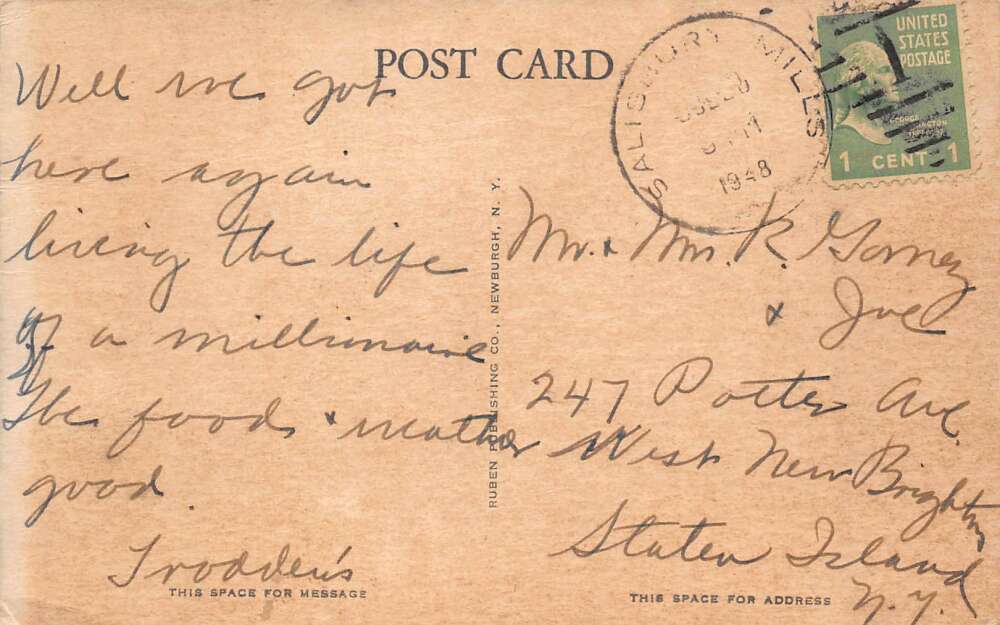 POST CARD
Well we got
here again
living the life
of a millionaire
The food & weather
good.
Trodden's
THIS SPACE FOR MESSAGE
RUBEN PUBLISHING CO., NEWBURGH, N. Y.
SALISBURY MILLS
1948
UNITED
STATES
POSTAGE
1 CENT 1
Mr. & Mrs. R. Gomez
& Joe
247 Potter Ave.
West New Brighton
Staten Island
N.Y.
THIS SPACE FOR ADDRESS